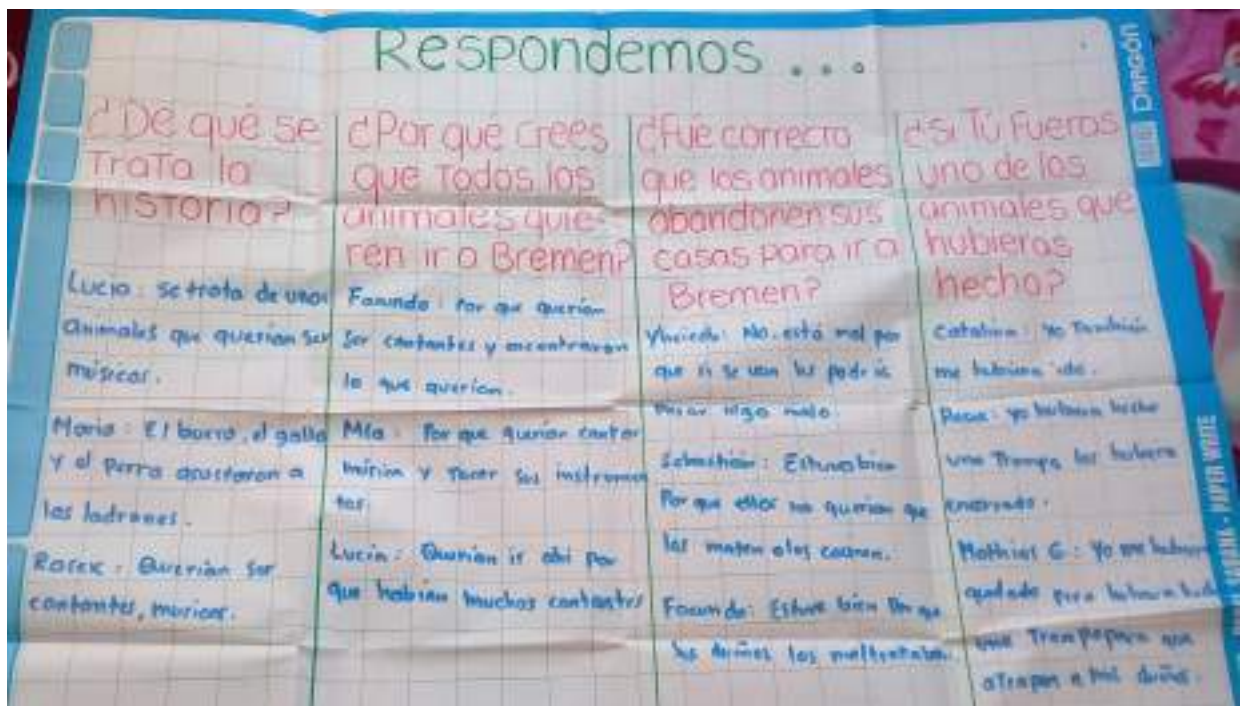 Respondemos...
DRAGÓN
¿De qué se
Trata la
historia?
Lucia: Se trata de unos
animales que querian ser
músicos.
Maria: El burro, el gallo
y el perro asustaron a
los ladrones.
Querian ser
cantantes, musicos.
¿Por qué crees
que Todos los
animales quie-
ren ir a Bremen?
Facundo: Por que querian
ser cantantes y encontraron
lo que querian.
Mía: Por que querian cantar
y tocar sus instrumen
tos.
Lucia: Querian ir ahi por
que habian muchos cantantes
¿Fué correcto
que los animales
abandonen sus
casas para ir a
Bremen?
No. está mal por
que si se van les podria
pasar algo malo.
Sebasthian: Estuvo bien
Por que ellos no querian que
los maten
Facundo: Estuvo bien Por que
sus dueños los maltrataban.
¿Si Tú fueras
uno de los
animales que
hubieras
hecho?
Catalina: Yo Tambien
me hubiera ido.
yo hubiera hecho
una Trampa los hubiera
encerrado.
Mathias G: Yo me hubiera
quedado pero hubiera
una Trampa para que
atrapen a mis dueños.
PAPER WHITE